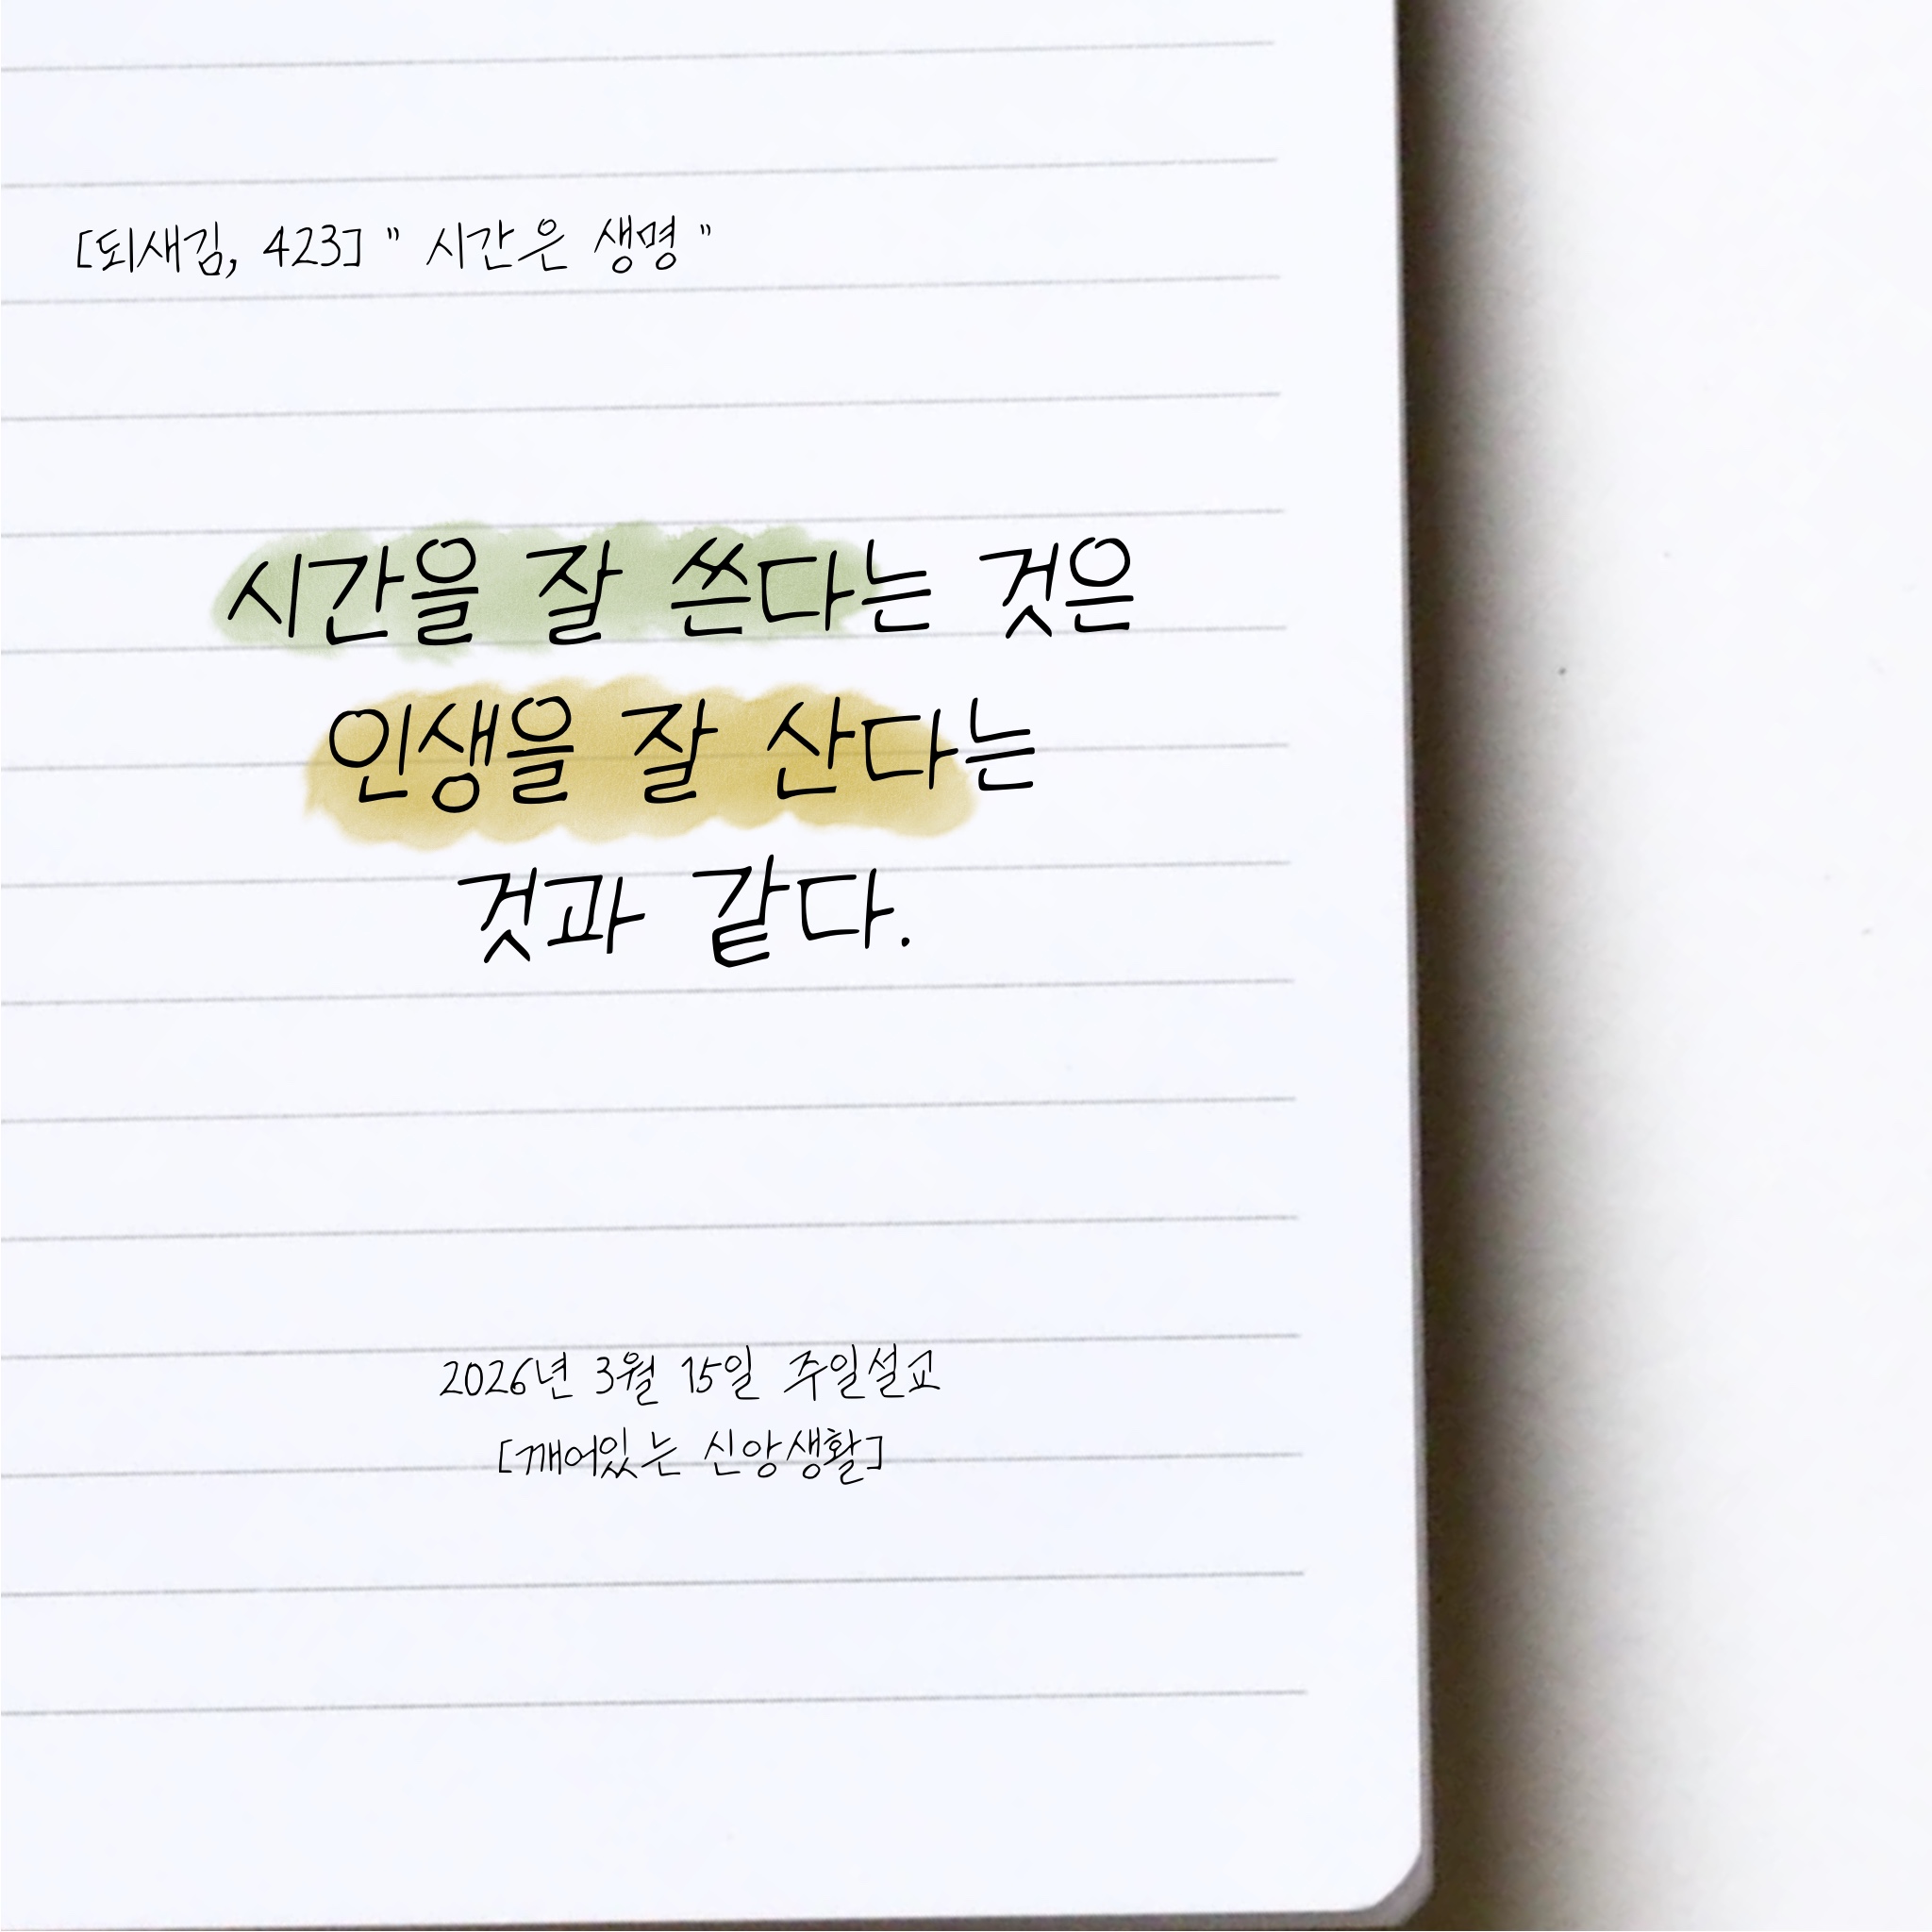 [되새김, 423] " 시간은 생명 "
시간을 잘 쓴다는 것은
인생을 잘 산다는
것과 같다.
2026년 3월 15일 주일설교
[깨어있는 신앙생활]